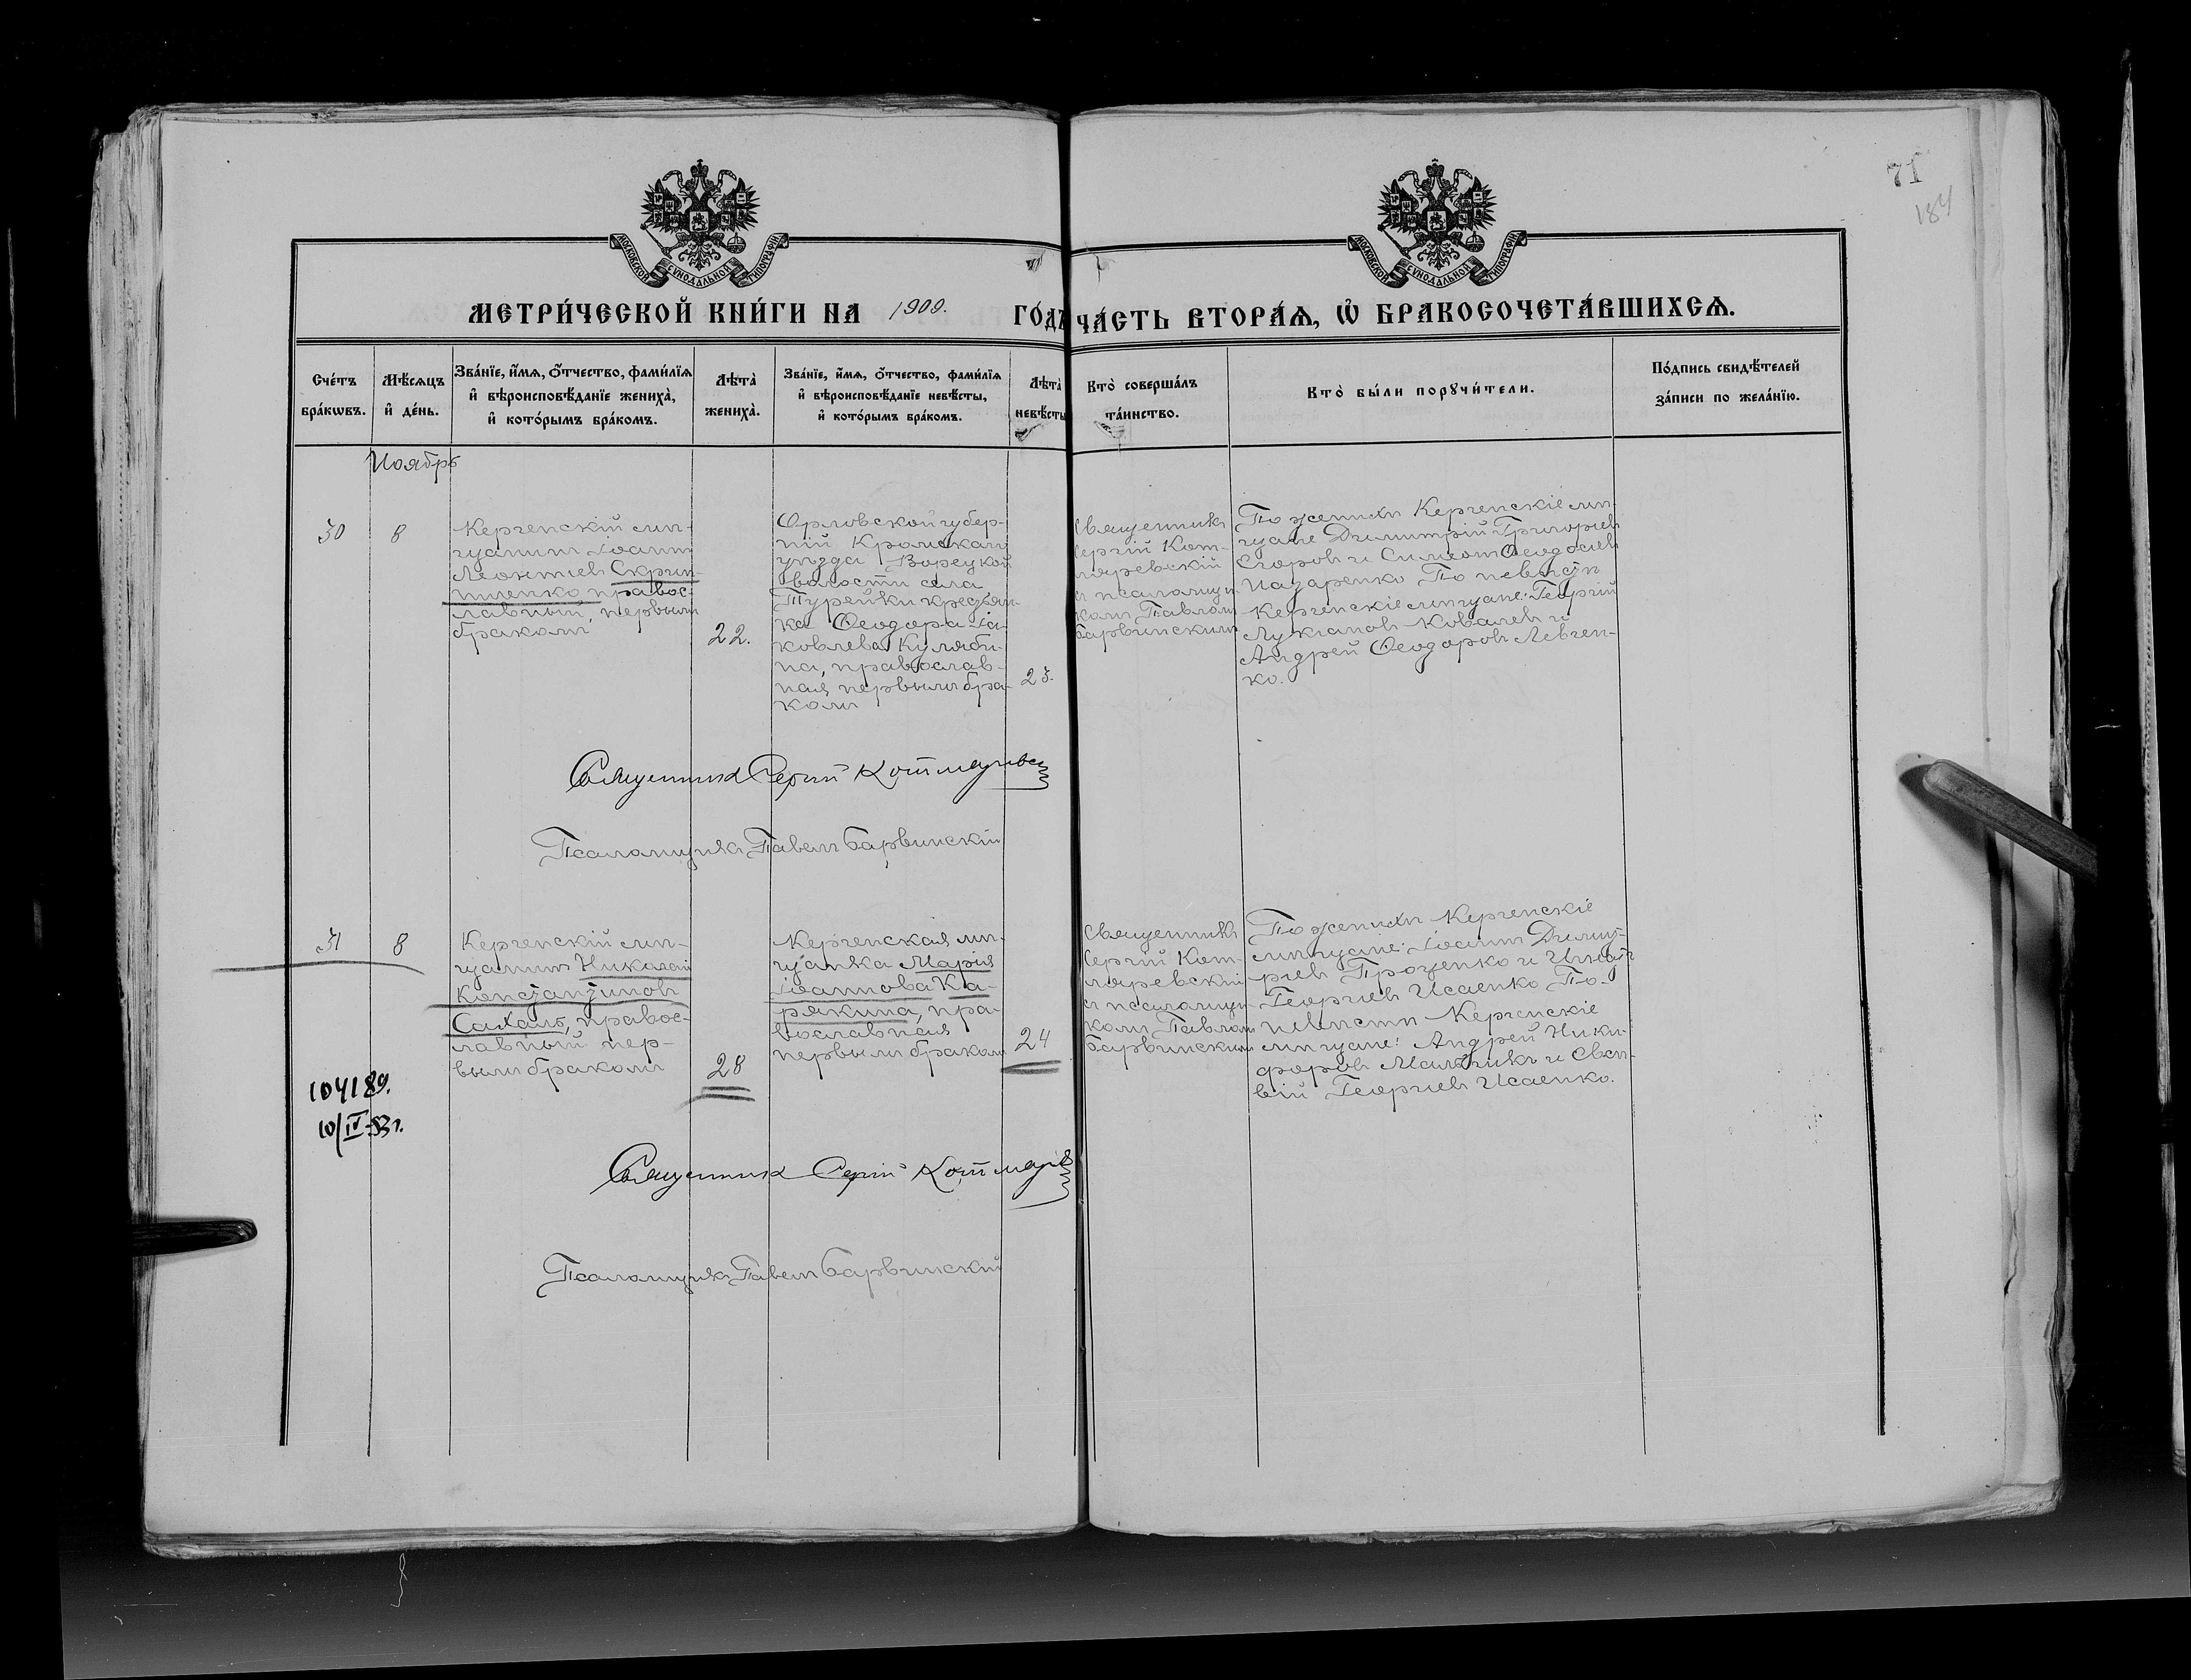 71
184
МОСКОВСКОЙ СУНОДАЛЬНОЙ ТИПОГРАФІИ
МОСКОВСКОЙ СУНОДАЛЬНОЙ ТИПОГРАФІИ
МЕТРИ́ЧЕСКОЙ КНИ́ГИ НА 1909. ГО́ДЪ
ЧА́СТЬ ВТОРА́Ѧ, Ѡ҆ БРАКОСОЧЕТА́ВШИХСѦ.
Сче́тъ
бра́кѡвъ.
Мѣ́сѧцъ
и҆ де́нь.
Зва́нїе, и҆́мѧ, о҆́тчество, фами́лїѧ
и҆ вѣроисповѣ́данїе жениха̀,
и҆ кото́рымъ бра́комъ.
Лѣ́та̀
жениха̀.
Зва́нїе, и҆́мѧ, о҆́тчество, фами́лїѧ
и҆ вѣроисповѣ́данїе невѣ́сты,
и҆ кото́рымъ бра́комъ.
Лѣ́та̀
невѣ́сты
Кто̀ соверша́лъ
та́инство.
Кто̀ бы́ли порꙋчи́тели.
По́дпись свидѣ́телей
за́писи по жела́нїю.
Ноябрь
30
8
Керченскій мѣ-
щанинъ Іоаннъ
Леонтіевъ Скрип-
ниченко правос-
лавный, первымъ
бракомъ
22.
Орловской губер-
ніи Кромскаго
уѣзда
волости села
Турейки крестьян-
ка Ѳеодора Іа-
ковлева Куляби-
на, православ-
ная первымъ бра-
комъ
23.
Священникъ
Сергій Кот-
ляревскій
съ псаломщи-
комъ Павломъ
Барвинскимъ
По женихѣ Керченскіе мѣ-
щане Димитрій Григорьевъ
Егоровъ и Симеонъ Ѳеодосіевъ
Назаренко По невѣстѣ
Керченскіе мѣщане: Георгій
Лукіановъ Ковалевъ и
Андрей Ѳеодоровъ Левчен-
ко.
Священникъ Сергій Котляревскій
Псаломщикъ Павелъ Барвинскій
31
8
Керченскій мѣ-
щанинъ Николай
Константиновъ
Сахаль, правос-
лавный пер-
вымъ бракомъ
28
Керченская мѣ-
щанка Марія
Іоаннова Ка-
рякина, пра-
вославная
первымъ бракомъ
24
Священникъ
Сергій Кот-
ляревскій
съ псаломщи-
комъ Павломъ
Барвинскимъ
По женихѣ Керченскіе
мѣщане: Іоаннъ Димит-
ріевъ Проценко и Игнатъ
Георгіевъ Исаенко По
невѣстѣ Керченскіе
мѣщане: Андрей Ники-
форовъ Мальчикъ и Евсе-
вій Георгіевъ Исаенко.
104189.
10/IV-53г.
Священникъ Сергій Котляревскій
Псаломщикъ Павелъ Барвинскій